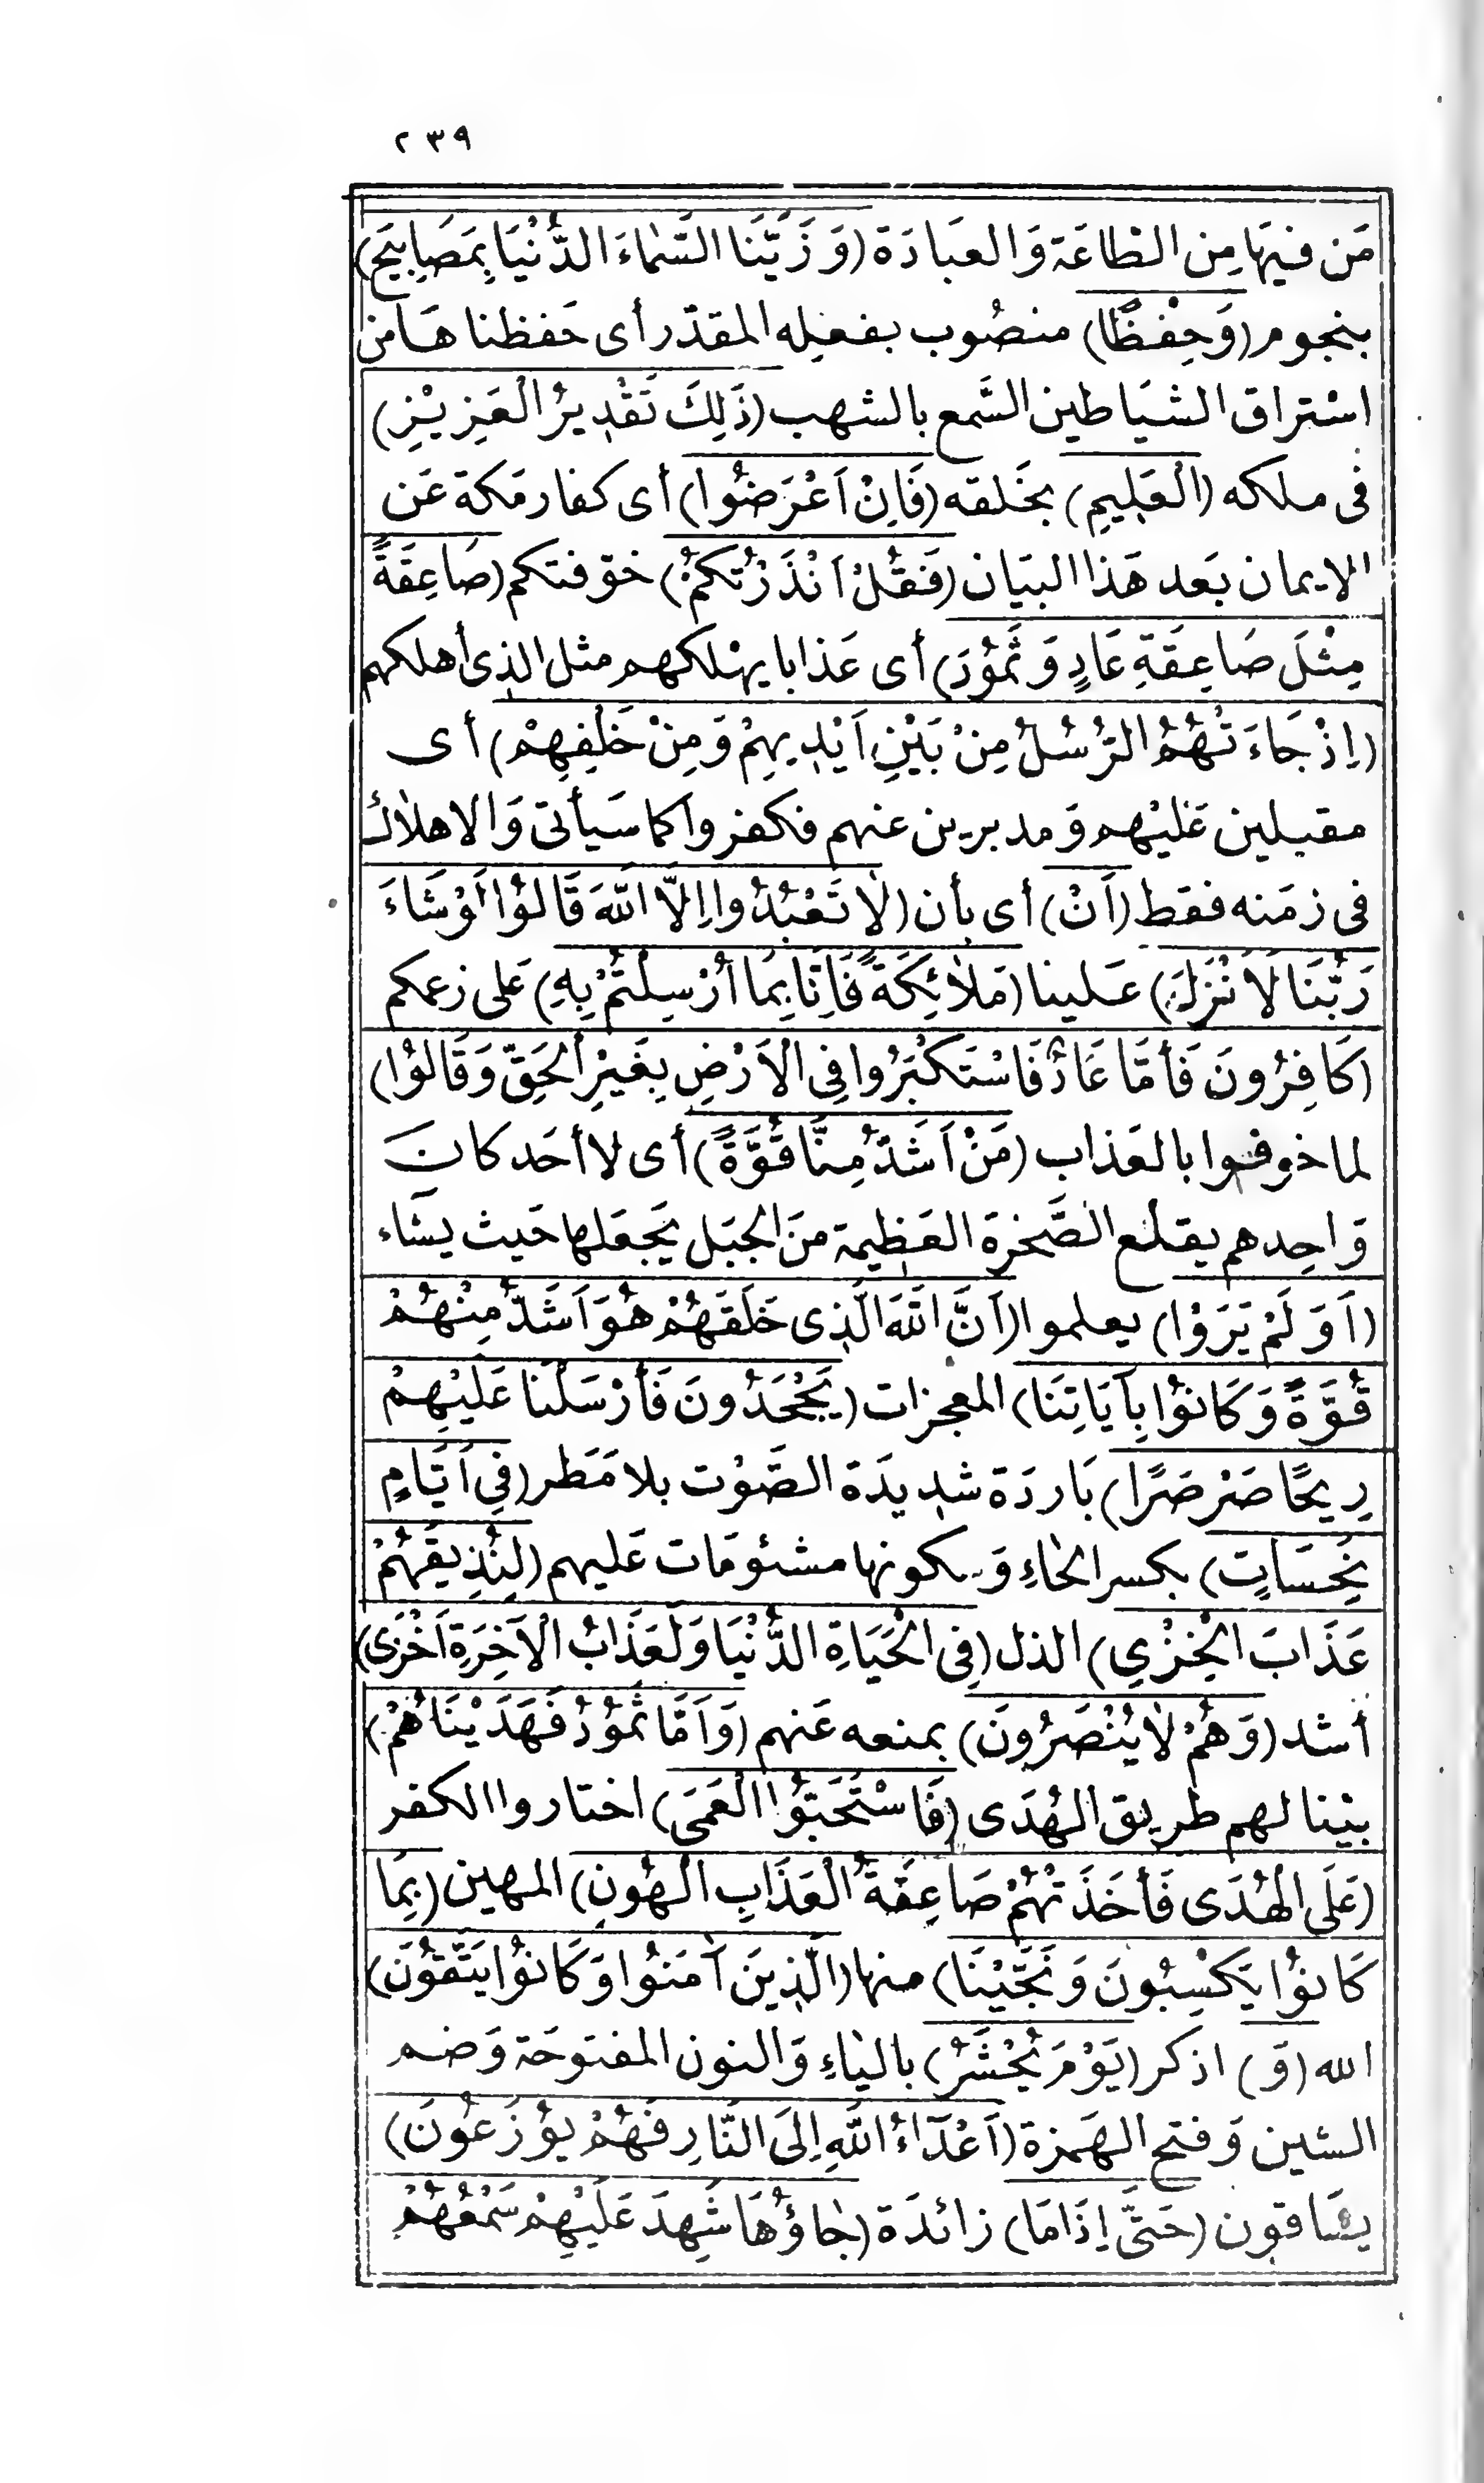 ٢٣٩
مَن فيهَا مِن الطاعَة وَالعبَادَة (وَزَيَّنَا السَّمَاءَ الدُّنْيَا بِمَصَابِيحَ)
بنجوم (وَحِفْظًا) منصُوب بفعله المقدّر أى حَفظنا هَا من
استراق الشيَاطين السَّمع بالشهب (ذَلِكَ تَقْدِيرُ الْعَزِيْزِ)
فى ملكه (الْعَلِيمِ) بخَلقه (فَاِنْ اَعْرَضُوا) أى كفار مَكة عَن
الايمان بَعد هَذا البيَان (فَقُلْ اَنْذَرْتُكُمْ) خوّفتكم (صَاعِقَةً
مِثْلَ صَاعِقَةِ عَادٍ وَثَمُوْدَ) أى عَذابا يهْلكهم مثل الذى أهلكهم
(اِذْ جَاءَتْهُمُ الرُّسُلُ مِنْ بَيْنِ اَيْدِيهِمْ وَمِنْ خَلْفِهِمْ) أى
مقبلين عَليْهم وَمدبرين عنهم فكفروا كما سَيأتى وَالاهلاك
فى زمَنه فقط (اَنْ) أى بأن (لَا تَعْبُدُوا اِلَّا اللّٰهَ قَالُوْا لَوْ شَاءَ
رَبُّنَا لَاَنْزَلَ) عَلينا (مَلَائِكَةً فَاِنَّا بِمَا أُرْسِلْتُمْ بِهِ) عَلى زعمكم
(كَافِرُونَ فَأَمَّا عَادٌ فَاسْتَكْبَرُوا فِى الْاَرْضِ بِغَيْرِ الْحَقِّ وَقَالُوْا)
لما خوفوا بالعَذاب (مَنْ اَشَدُّ مِنَّا قُوَّةً) أى لا أحَد كانَ
وَاحِدهم يقلع الصَّخرَة العَظيمة منَ الجبَل يَجعَلها حَيث يشاء
(اَوَلَمْ يَرَوْا) يعلموا (اَنَّ اللّٰهَ الَّذِى خَلَقَهُمْ هُوَ اَشَدُّ مِنْهُمْ
قُوَّةً وَكَانُوْا بِآيَاتِنَا) المعجزات (يَجْحَدُونَ فَأَرْسَلْنَا عَلَيْهِمْ
رِيحًا صَرْصَرًا) بَاردَة شديدَة الصَّوْت بلا مَطر (فِى اَيَّامٍ
نَحِسَاتٍ) بكسر الحاءِ وَسكونها مشئومَات عَليهم (لِنُذِيقَهُمْ
عَذَابَ الْخِزْيِ) الذل (فِى الْحَيَاةِ الدُّنْيَا وَلَعَذَابُ الْآخِرَةِ اَخْزَى)
أشد (وَهُمْ لَا يُنْصَرُونَ) بمنعه عَنهم (وَاَمَّا ثَمُوْدُ فَهَدَيْنَاهُمْ)
بيْنا لهم طريق الهُدَى (فَاسْتَحَبُّوا الْعَمَى) اختاروا الكفر
(عَلَى الْهُدَى فَأَخَذَتْهُمْ صَاعِقَةُ الْعَذَابِ الْهُونِ) المهين (بِمَا
كَانُوْا يَكْسِبُونَ وَنَجَّيْنَا) منها (الَّذِينَ آمَنُوا وَكَانُوْا يَتَّقُوْنَ)
الله (وَ) اذكر (يَوْمَ يُحْشَرُ) باليَاءِ وَالنون المفتوحَة وَضم
الشين وَفتح الهَمزة (اَعْدَآءُ اللّٰهِ اِلَى النَّارِ فَهُمْ يُوْزَعُوْنَ)
يسَاقون (حَتَّى اِذَا مَا) زائدَة (جَاؤُهَا شَهِدَ عَلَيْهِمْ سَمْعُهُمْ